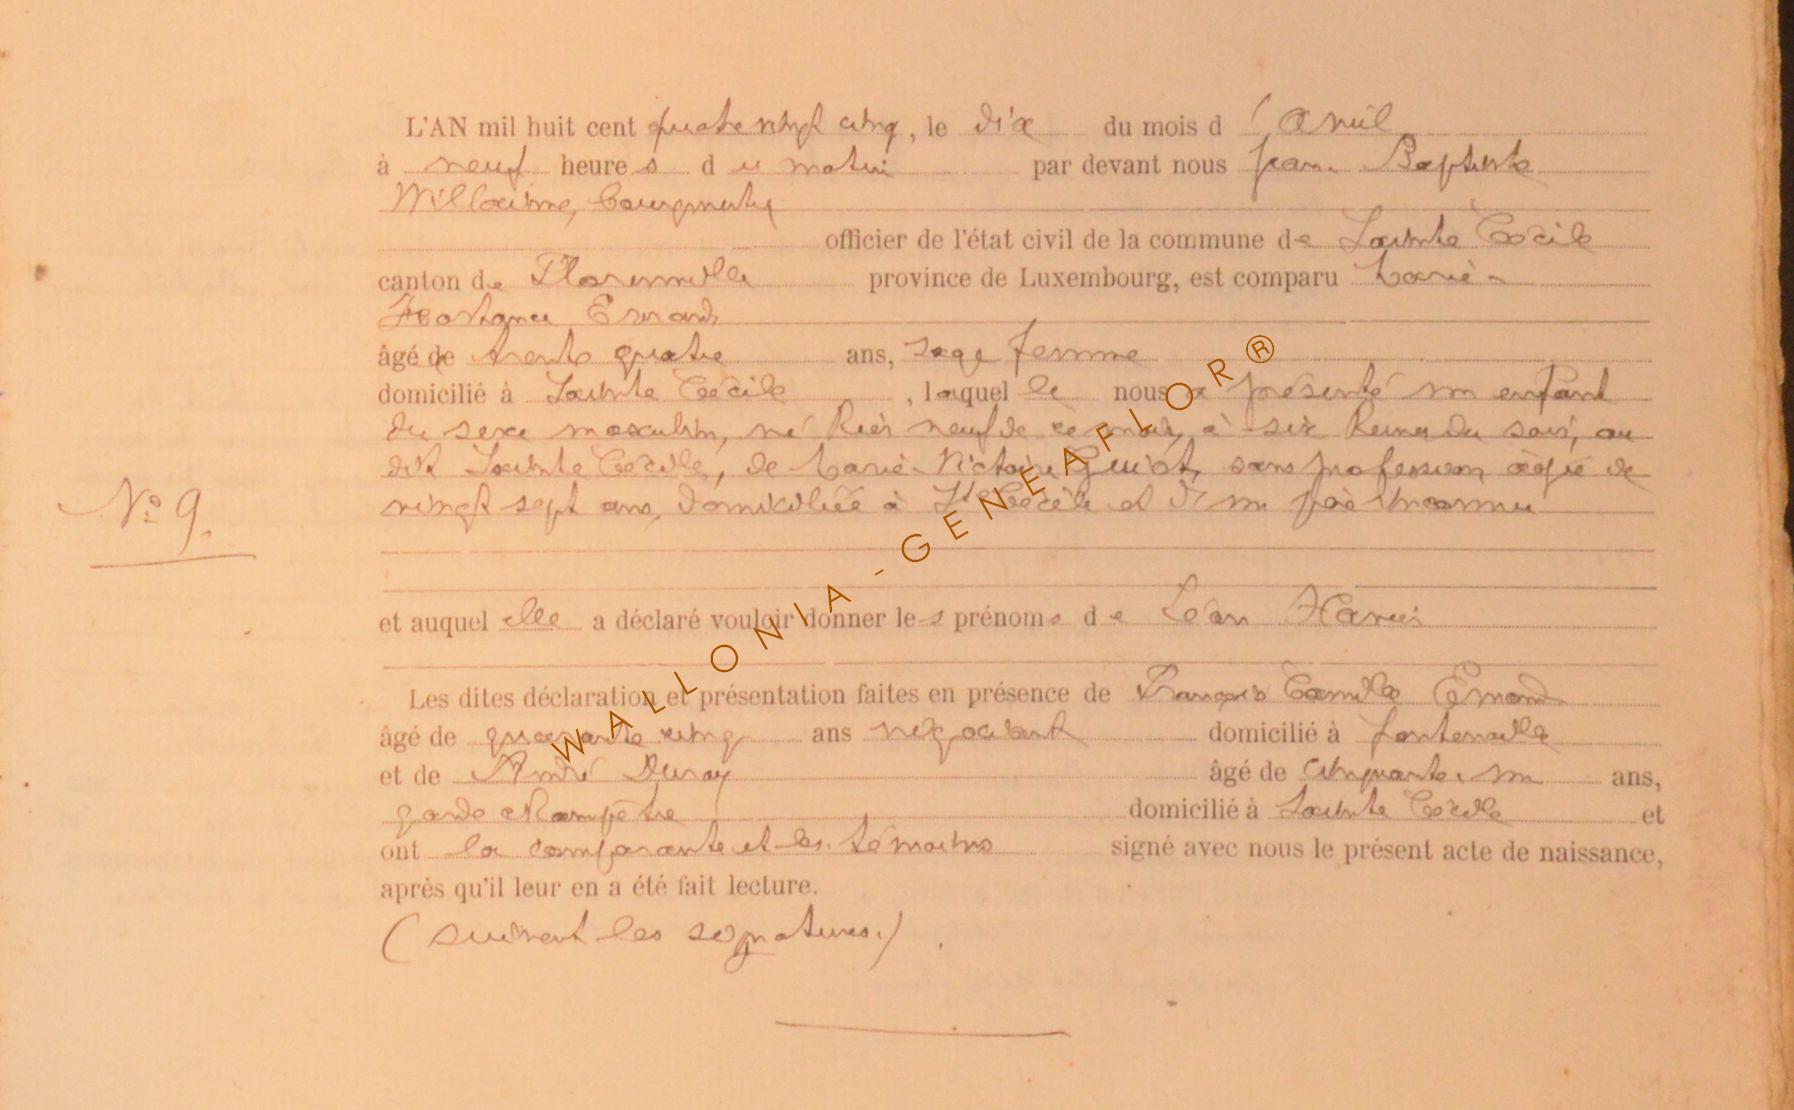 L'AN mil huit cent quatre vingt cinq, le dix du mois d'avril
à neuf heures du matin par devant nous Jean Baptiste
Willaime, bourgmestre
officier de l'état civil de la commune de Sainte Cécile
canton de Florenville province de Luxembourg, est comparu Marie
Hortance
âgé de trente quatre ans, sage femme
domicilié à Sainte Cécile, laquelle nous a présenté un enfant
du sexe masculin, né hier neuf de ce mois, à six heures du soir, au
dit Sainte Cécile, de Marie Victoire Guiot, sans profession âgée de
vingt sept ans, domiciliée à Ste Cécile et d'un père inconnu
N° 9.
et auquel elle a déclaré vouloir donner les prénoms de Léon
Les dites déclaration et présentation faites en présence de François Camille
âgé de quarante cinq ans négociant domicilié à Fontenoille
et de André Duray âgé de cinquante un ans,
garde champêtre domicilié à Sainte Cécile et
ont la comparante et les témoins signé avec nous le présent acte de naissance,
après qu'il leur en a été fait lecture.
(suivent les signatures.)
WALLONIA-GENEAFLOR®